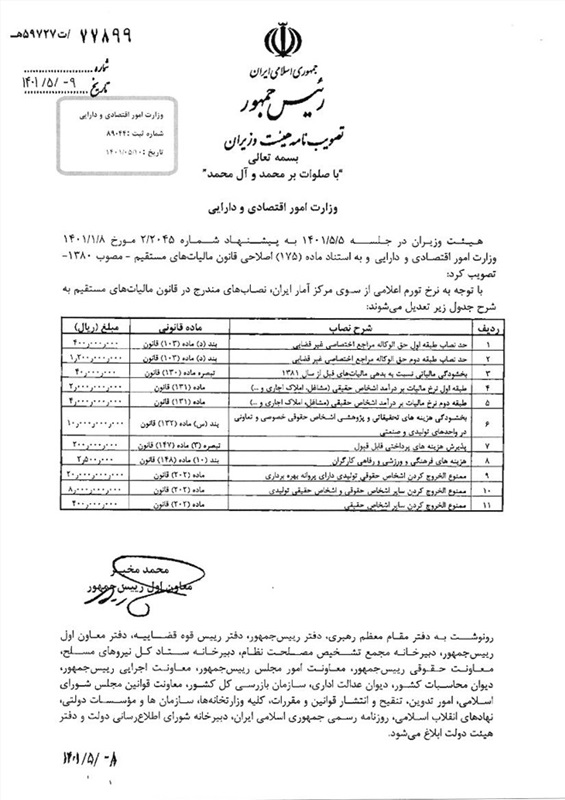 ۷۷۸۹۹ /ت۵۹۷۲۷هـ
شماره
تاریخ ۱۴۰۱/۵/۰۹
جمهوری اسلامی ایران
رئیس جمهور
تصویب نامه هیئت وزیران
وزارت امور اقتصادی و دارایی
شماره ثبت :۸۹۰۴۴
تاریخ :۱۴۰۱/۰۵/۱۰
بسمه تعالی
"با صلوات بر محمد و آل محمد"
وزارت امور اقتصادی و دارایی
هیئت وزیران در جلسه ۱۴۰۱/۵/۵ به پیشنهاد شماره ۲/۲۰۴۵ مورخ ۱۴۰۱/۱/۸
وزارت امور اقتصادی و دارایی و به استناد ماده (۱۷۵) اصلاحی قانون مالیات‌های مستقیم - مصوب ۱۳۸۰-
تصویب کرد:
با توجه به نرخ تورم اعلامی از سوی مرکز آمار ایران، نصاب‌های مندرج در قانون مالیات‌های مستقیم به
شرح جدول زیر تعدیل می‌شوند:
ردیف شرح نصاب ماده قانونی مبلغ (ریال)
۱ حد نصاب طبقه اول حق الوکاله مراجع اختصاصی غیر قضایی بند (د) ماده (۱۰۳) قانون ۴۰۰٫۰۰۰٫۰۰۰
۲ حد نصاب طبقه دوم حق الوکاله مراجع اختصاصی غیر قضایی بند (د) ماده (۱۰۳) قانون ۱٫۲۰۰٫۰۰۰٫۰۰۰
۳ بخشودگی مالیاتی نسبت به بدهی مالیات‌های قبل از سال ۱۳۸۱ تبصره ماده (۱۳۰) قانون ۴۰٫۰۰۰٫۰۰۰
۴ طبقه اول نرخ مالیات بر درآمد اشخاص حقیقی (مشاغل، املاک اجاری و ...) ماده (۱۳۱) قانون ۲٫۰۰۰٫۰۰۰٫۰۰۰
۵ طبقه دوم نرخ مالیات بر درآمد اشخاص حقیقی (مشاغل، املاک اجاری و ...) ماده (۱۳۱) قانون ۴٫۰۰۰٫۰۰۰٫۰۰۰
۶ بخشودگی هزینه های تحقیقاتی و پژوهشی اشخاص حقوقی خصوصی و تعاونی
در واحدهای تولیدی و صنعتی بند (س) ماده (۱۳۲) قانون ۱۰٫۰۰۰٫۰۰۰٫۰۰۰
۷ پذیرش هزینه های پرداختی قابل قبول تبصره (۳) ماده (۱۴۷) قانون ۲۰۰٫۰۰۰٫۰۰۰
۸ هزینه های فرهنگی و ورزشی و رفاهی کارگران بند (۱۰) ماده (۱۴۸) قانون ۲٫۵۰۰٫۰۰۰
۹ ممنوع الخروج کردن اشخاص حقوقی تولیدی دارای پروانه بهره برداری ماده (۲۰۲) قانون ۲۰٫۰۰۰٫۰۰۰٫۰۰۰
۱۰ ممنوع الخروج کردن سایر اشخاص حقوقی و اشخاص حقیقی تولیدی ماده (۲۰۲) قانون ۸٫۰۰۰٫۰۰۰٫۰۰۰
۱۱ ممنوع الخروج کردن سایر اشخاص حقیقی ماده (۲۰۲) قانون ۴۰۰٫۰۰۰٫۰۰۰
محمد مخبر
معاون اول رییس جمهور
رونوشت به دفتر مقام معظم رهبری، دفتر رییس‌جمهور، دفتر رییس قوه قضاییه، دفتر معاون اول
رییس‌جمهور، دبیرخانه مجمع تشخیص مصلحت نظام، دبیرخانه ستاد کل نیروهای مسلح،
معاونت حقوقی رییس‌جمهور، معاونت امور مجلس رییس‌جمهور، معاونت اجرایی رییس‌جمهور،
دیوان محاسبات کشور، دیوان عدالت اداری، سازمان بازرسی کل کشور، معاونت قوانین مجلس شورای
اسلامی، امور تدوین، تنقیح و انتشار قوانین و مقررات، کلیه وزارتخانه‌ها، سازمان ها و مؤسسات دولتی،
نهادهای انقلاب اسلامی، روزنامه رسمی جمهوری اسلامی ایران، دبیرخانه شورای اطلاع‌رسانی دولت و دفتر
هیئت دولت ابلاغ می‌شود.
۱۴۰۱/۵/۰۸